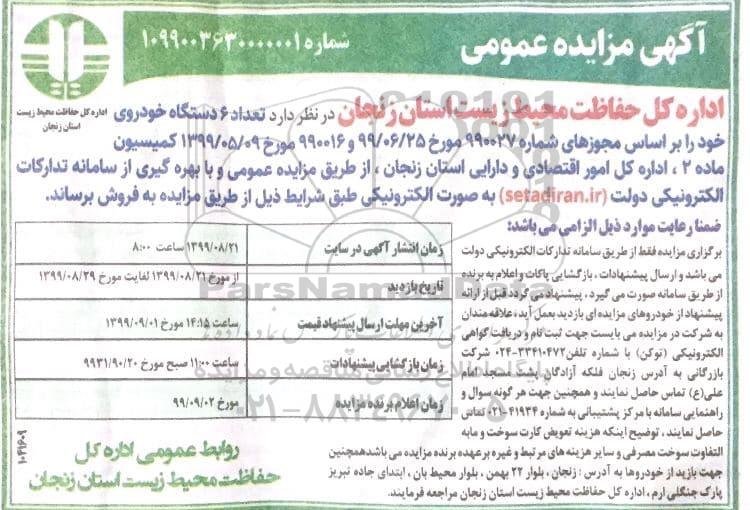 آگهی مزایده عمومی
شماره ۱۰۹۹۰۰۳۶۳۰۰۰۰۰۰۱
اداره کل حفاظت محیط زیست
استان زنجان
اداره کل حفاظت محیط زیست استان زنجان در نظر دارد تعداد ۶ دستگاه خودروی
خود را بر اساس مجوزهای شماره ۹۹۰۰۲۷ مورخ ۹۹/۰۶/۲۵ و ۹۹۰۰۱۶ مورخ ۱۳۹۹/۰۵/۰۹ کمیسیون
ماده ۲ ، اداره کل امور اقتصادی و دارایی استان زنجان ، از طریق مزایده عمومی و با بهره گیری از سامانه تدارکات
الکترونیکی دولت (setadiran.ir) به صورت الکترونیکی طبق شرایط ذیل از طریق مزایده به فروش برساند.
ضمنا رعایت موارد ذیل الزامی می باشد:
برگزاری مزایده فقط از طریق سامانه تدارکات الکترونیکی دولت
می باشد و ارسال پیشنهادات ، بازگشایی پاکات و اعلام به برنده
از طریق سامانه صورت می گیرد ، پیشنهاد می گردد قبل از ارائه
پیشنهاد از خودروهای مزایده ای بازدید بعمل آید، علاقه مندان
به شرکت در مزایده می بایست جهت ثبت نام و دریافت گواهی
الکترونیکی (توکن) با شماره تلفن ۳۳۴۱۰۴۷۲-۰۲۴ شرکت
بازرگانی به آدرس زنجان فلکه آزادگان پشت مسجد امام
علی(ع) تماس حاصل نمایند و همچنین جهت هر گونه سوال و
راهنمایی سامانه با مرکز پشتیبانی به شماره ۴۱۹۳۴-۰۲۱ تماس
حاصل نمایند ، توضیح اینکه هزینه تعویض کارت سوخت و مابه
التفاوت سوخت مصرفی و سایر هزینه های مرتبط و غیره بر عهده برنده مزایده می باشد همچنین
جهت بازید از خودروها به آدرس : زنجان ، بلوار ۲۲ بهمن ، بلوار محیط بان ، ابتدای جاده تبریز
پارک جنگلی ارم ، اداره کل حفاظت محیط زیست استان زنجان مراجعه فرمایند.
زمان انتشار آگهی در سایت ۱۳۹۹/۰۸/۲۱ ساعت ۸:۰۰
تاریخ بازدید از مورخ ۱۳۹۹/۰۸/۲۱ لغایت مورخ ۱۳۹۹/۰۸/۲۹
آخرین مهلت ارسال پیشنهاد قیمت ساعت ۱۴:۱۵ مورخ ۱۳۹۹/۰۹/۰۱
زمان بازگشایی پیشنهادات ساعت ۱۱:۰۰ صبح مورخ ۹۹۳۱/۹۰/۲۰
زمان اعلام برنده مزایده مورخ ۹۹/۰۹/۰۲
روابط عمومی اداره کل
حفاظت محیط زیست استان زنجان
ParsNamadData